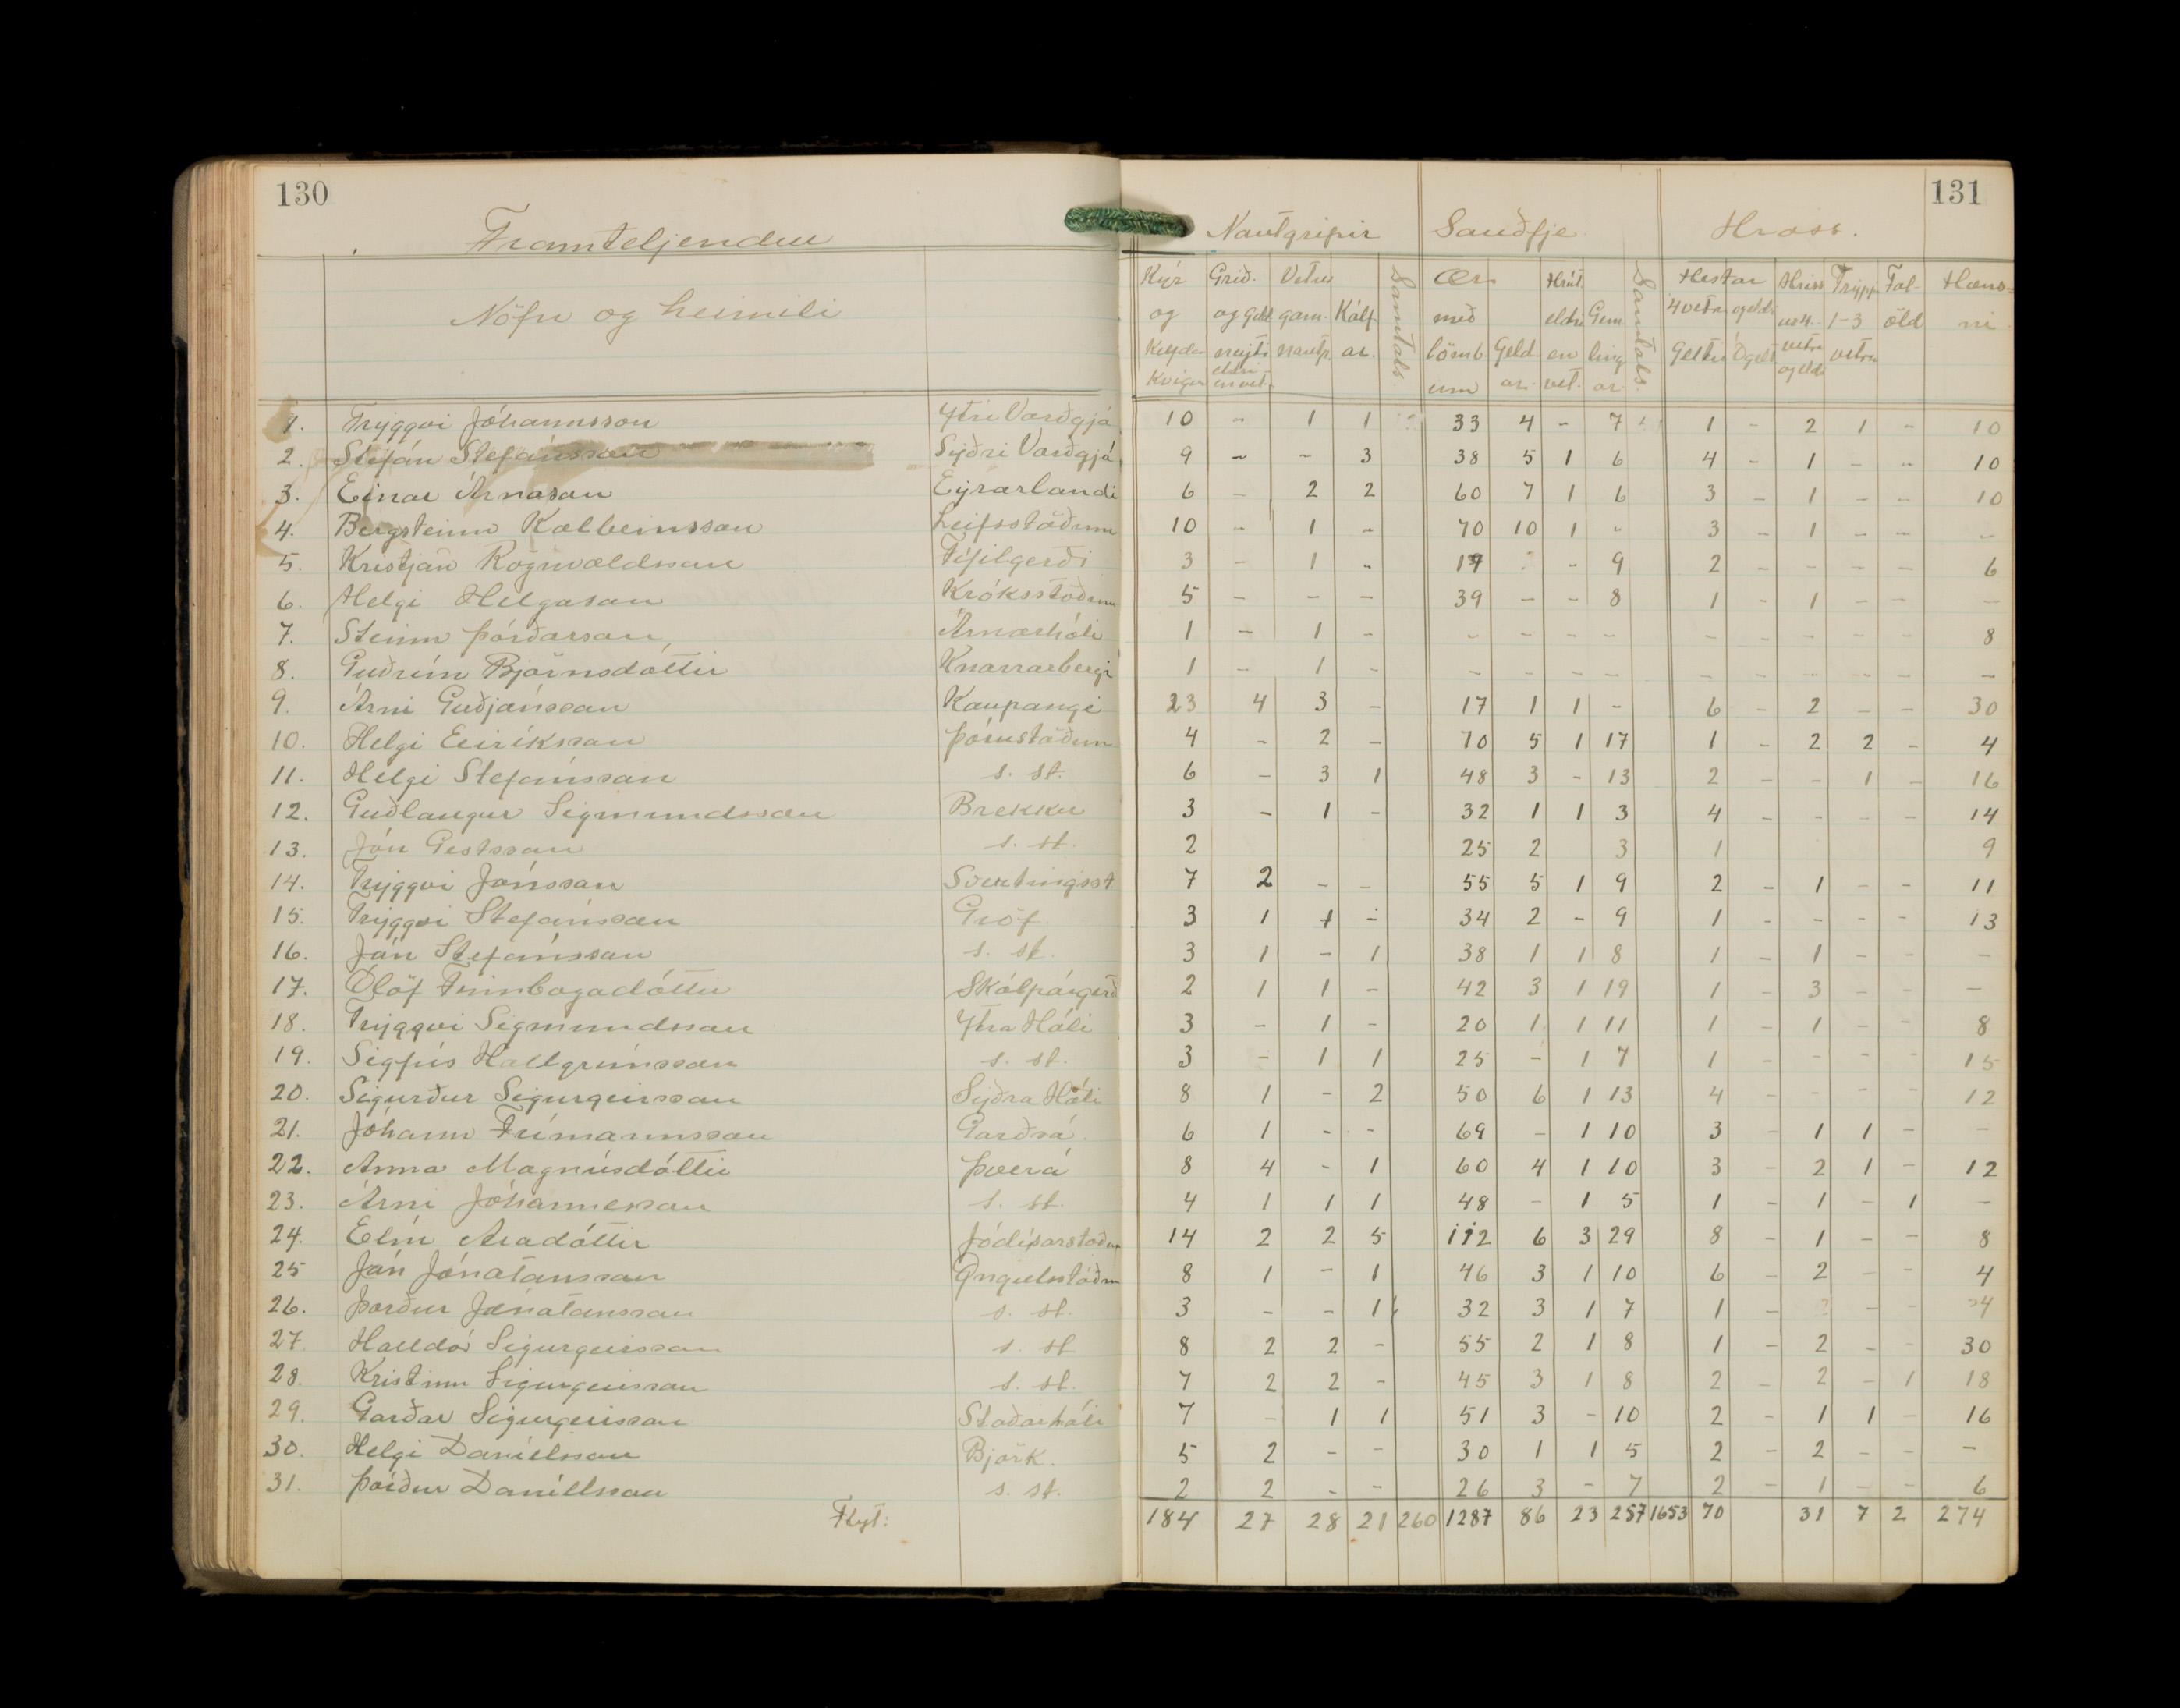 130
131
Framteljendur
Nautgripir Sauðfje Hross.
Nöfn og heimili
Kýr og Kelfdar Kvígur
Grið. og geld neyti eldri en vet.
Vetur gam. nautp.
Kálf ar.
Samtals.
Ær með lömb um
Geld ar.
Hrút. eldri en vet.
Gem ling ar
Samtals.
Hestar 4 vetra og eldri
Geltir Ógelt
Hriss ur 4. vetra og eldri
Tripp 1-3 vetra
Fol- öld
Hæns- ni
1. Tryggvi Jóhannsson Ytri Varðgjá 10 - 1 1 33 4 - 7 1 - 2 1 - 10
2. Stefán Stefánsson Syðri Varðgjá 9 - - 3 38 5 1 6 4 - 1 - - 10
3. Einar Árnason Eyrarlandi 6 - 2 2 60 7 1 6 3 - 1 - - 10
4. Bergsteinn Kolbeinsson Leifsstöðum 10 - 1 - 70 10 1 - 3 - 1 - - -
5. Kristján Rögnvaldsson Fífilgerði 3 - 1 - - 9 2 - - - - 6
6. Helgi Helgason Króksstöðum 5 - - - 39 - - 8 1 - 1 - - -
7. Steinn Þórðarson Árnarhóli 1 - 1 - - - - - - - - - - 8
8. Guðrún Björnsdóttir Knarrarbergi 1 - 1 - - - - - - - - - - -
9. Árni Guðjónsson Kaupangi 23 4 3 - 17 1 1 - 6 - 2 - - 30
10. Helgi Eiríksson Þórustöðum 4 - 2 - 70 5 1 17 1 - 2 2 - 4
11. Helgi Stefánsson s. st. 6 - 3 1 48 3 - 13 2 - - 1 - 16
12. Guðlaugur Sigmundsson Brekku 3 - 1 - 32 1 1 3 4 - - - - 14
13. Jón Gestsson s. st. 2 25 2 3 1 9
14. Tryggvi Jónsson Svertingsst 7 2 - - 55 5 1 9 2 - 1 - - 11
15. Tryggvi Stefánsson Gröf 3 1 1 - 34 2 - 9 1 - - - - 13
16. Jón Stefánsson s. st. 3 1 - 1 38 1 1 8 1 - 1 - - -
17. Ólöf Finnbogadóttir Skálpágerð 2 1 1 - 42 3 1 19 1 - 3 - - -
18. Tryggvi Sigmundsson Ytra Hóli 3 - 1 - 20 1 1 11 1 - 1 - - 8
19. Sigfús Hallgrímsson s. st. 3 - 1 1 25 - 1 7 1 - - - - 15
20. Sigurður Sigurgeirsson Syðra Hóli 8 1 - 2 50 6 1 13 4 - - - - 12
21. Jóhann Frímannsson Garðsá 6 1 - - 69 - 1 10 3 - 1 1 - -
22. Anna Magnúsdóttir Þverá 8 4 - 1 60 4 1 10 3 - 2 1 - 12
23. Árni Jóhannesson s. st. 4 1 1 1 48 - 1 5 1 - 1 - 1 -
24. Elín Aradóttir Jódísarstöðum 14 2 2 5 112 6 3 29 8 - 1 - - 8
25 Jón Jónatansson Öngulsstöðum 8 1 - 1 46 3 1 10 6 - 2 - - 4
26. Þorður Jónatansson s. st. 3 - - 1 32 3 1 7 1 - - -
27. Halldór Sigurgeirsson s. st 8 2 2 - 55 2 1 8 1 - 2 - - 30
28. Kristinn Sigurgeirsson s. st. 7 2 2 - 45 3 1 8 2 - 2 - 1 18
29. Garðar Sigurgeirsson Staðarhóli 7 - 1 1 51 3 - 10 2 - 1 1 - 16
30. Helgi Daníelsson Björk. 5 2 - - 30 1 1 5 2 - 2 - - -
31. Þórður Daníelsson s. st. 2 2 - - 26 3 - 7 2 - 1 - - 6
Flyt: 184 27 28 21 260 1287 86 23 257 1653 70 31 7 2 274